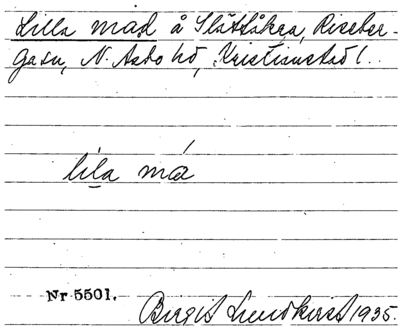 Lilla mad å Slättåkra, Riseber-
ga sn, N. Åsbo hd, Kristianstad l.
lila må
Nr 5501.
Birgit Lundkvist 1935.